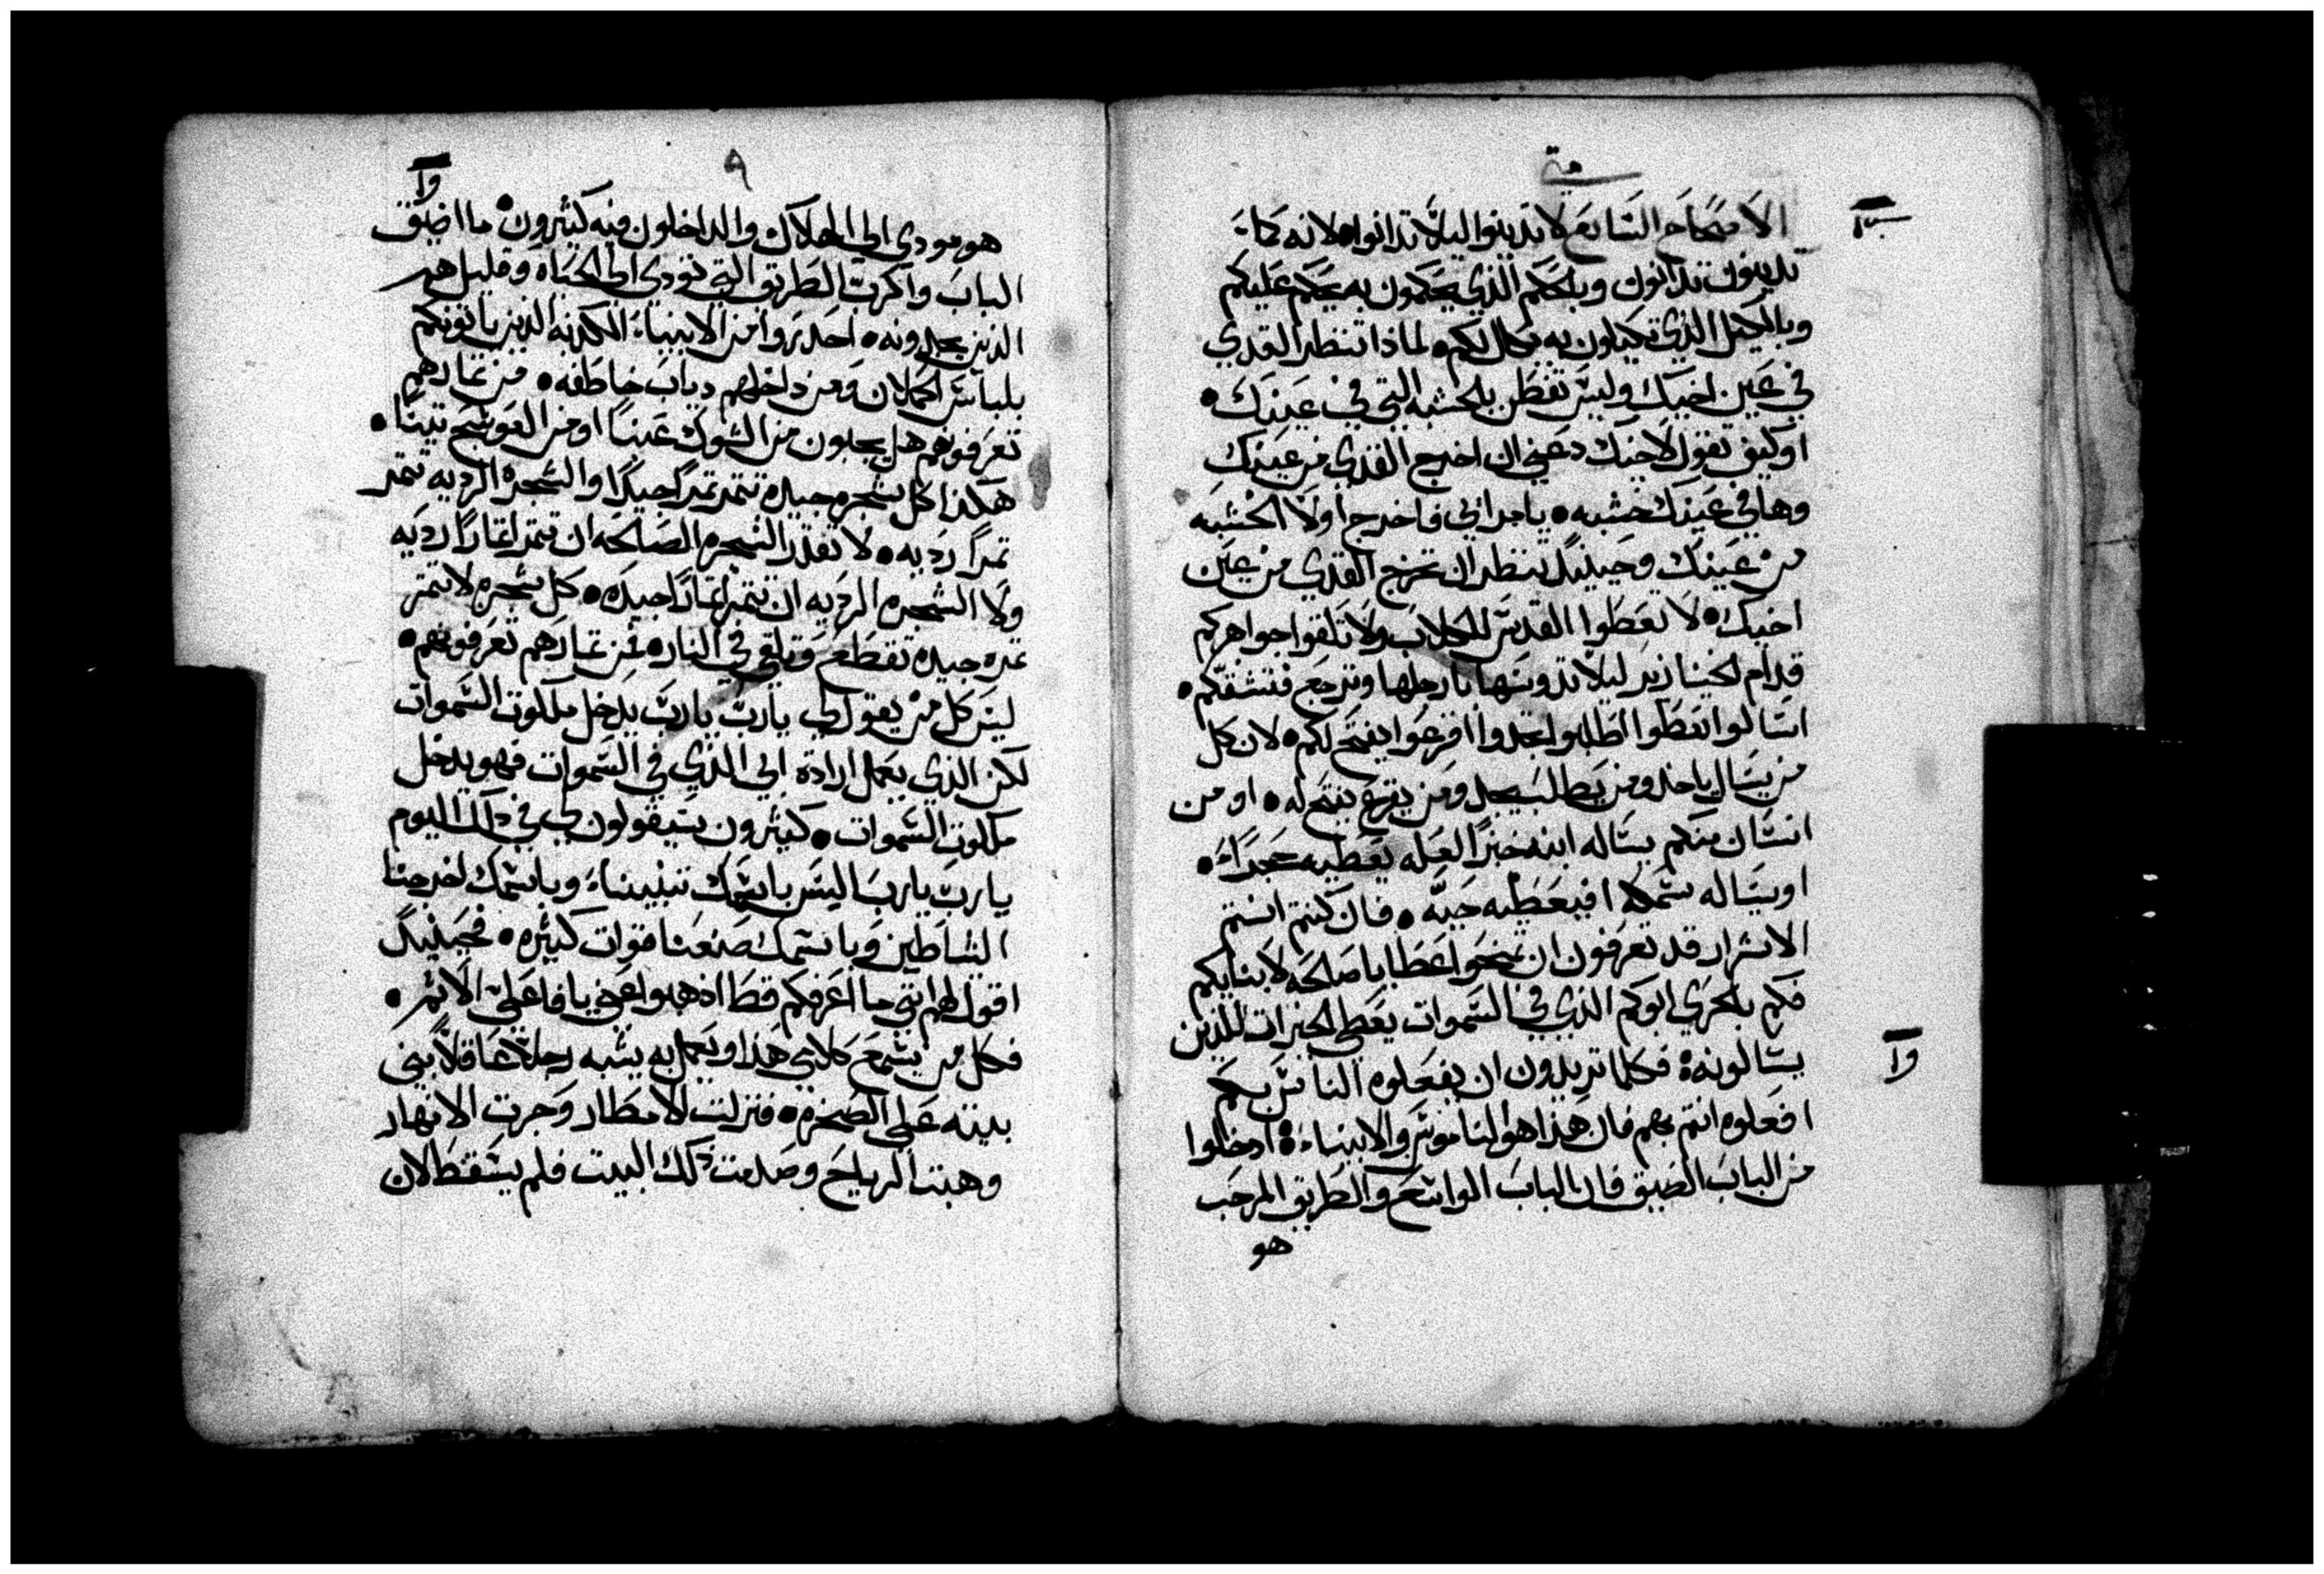 متى
الاصحاح السابع لا تدينوا ليلا تدانوا لانه كما
تدينون تدانون وبالحكم الذي تحكمون به يحكم عليكم
وبالكيل الذي تكيلون به يكال لكم لماذا تنظر القدي
في عين اخيك وليس تفطن بالخشبه التي في عينك
او كيف تقول لاخيك دعني ان اخرج القدي من عينك
وها في عينك خشبه يا مرائي فاخرج اولا الخشبه
من عينك وحينيد تنظر ان تخرج القدي من عين
اخيك لا تعطوا القدس للكلاب ولا تلقوا جواهركم
قدام الخنازير ليلا تدوسها بارجلها وترجع فتشقكم
اسالوا تعطوا اطلبوا تجدوا اقرعوا يفتح لكم لان كل
من يسال ياخد ومن يطلب يجد ومن يقرع يفتح له او من
انسان منكم يساله ابنه خبزا لعله يعطيه حجرا
او يساله سمكه افيعطيه حيه فان كنتم انتم
الاشرار قد تعرفون ان تمنحوا عطايا صالحه لابنايكم
فكم بالحري ابوكم الذي في السموات يعطي الخيرات للذين
يسالونه فكلما تريدون ان يفعلوه الناس بكم
افعلوه انتم بهم فان هذا هو الناموس والانبياء ادخلوا
من الباب الضيق فان الباب الواسع والطريق المرحب
هو
وا
٩
وا
هو مودي الي الهلاك والداخلون فيه كثيرون ما اضيق
الباب واكرب الطريق التي تودي الي الحياه وقليل هم
الذين يجدونه احدروا من الانبياء الكدبه الدين ياتونكم
بلباس الحملان ومن داخلهم دياب خاطفه من تمارهم
تعرفونهم هل يجنون من الشوك عنبا او من العوسج تينا
هكذا كل شجره جيده تتمر تمرا جيدا والشجره الرديه تتمر
تمرا رديه لا تقدر الشجره الصالحه ان تتمر اتمارا رديه
ولا الشجره الرديه ان تتمر اتمارا جيده كل شجره لا تتمر
تمره جيده تقطع وتلقي في النار فمن تمارهم تعرفونهم
ليس كل من يقول لي يارب يارب يدخل ملكوت السموات
لكن الذي يعمل ارادة ابي الذي في السموات فهو يدخل
ملكوت السموات كثيرون سيقولون لي في دلك اليوم
يارب يارب اليس باسمك تنبينا وباسمك اخرجنا
الشياطين وباسمك صنعنا قوات كثيره فحينيد
اقول لهم انني ما اعرفكم قط اذهبوا عني يا فاعلي الاثم
فكل من يسمع كلامي هذا ويعمل به يشبه رجلا عاقلا بني
بيته علي الصخره فنزلت الامطار وجرت الانهار
وهبت الرياح وصدمت ذلك البيت فلم يسقط لان